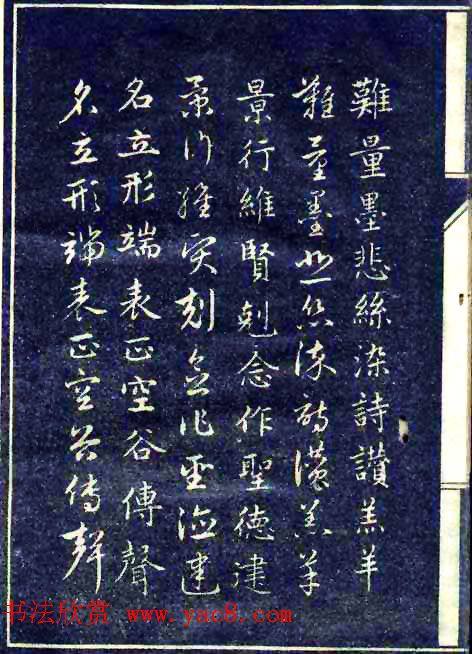 難量墨悲絲染詩讚羔羊
難量墨悲絲染詩讚羔羊
景行維賢剋念作聖德建
景行維賢剋念作聖德建
名立形端表正空谷傳聲
名立形端表正空谷傳聲
书法欣赏 www.yac8.com